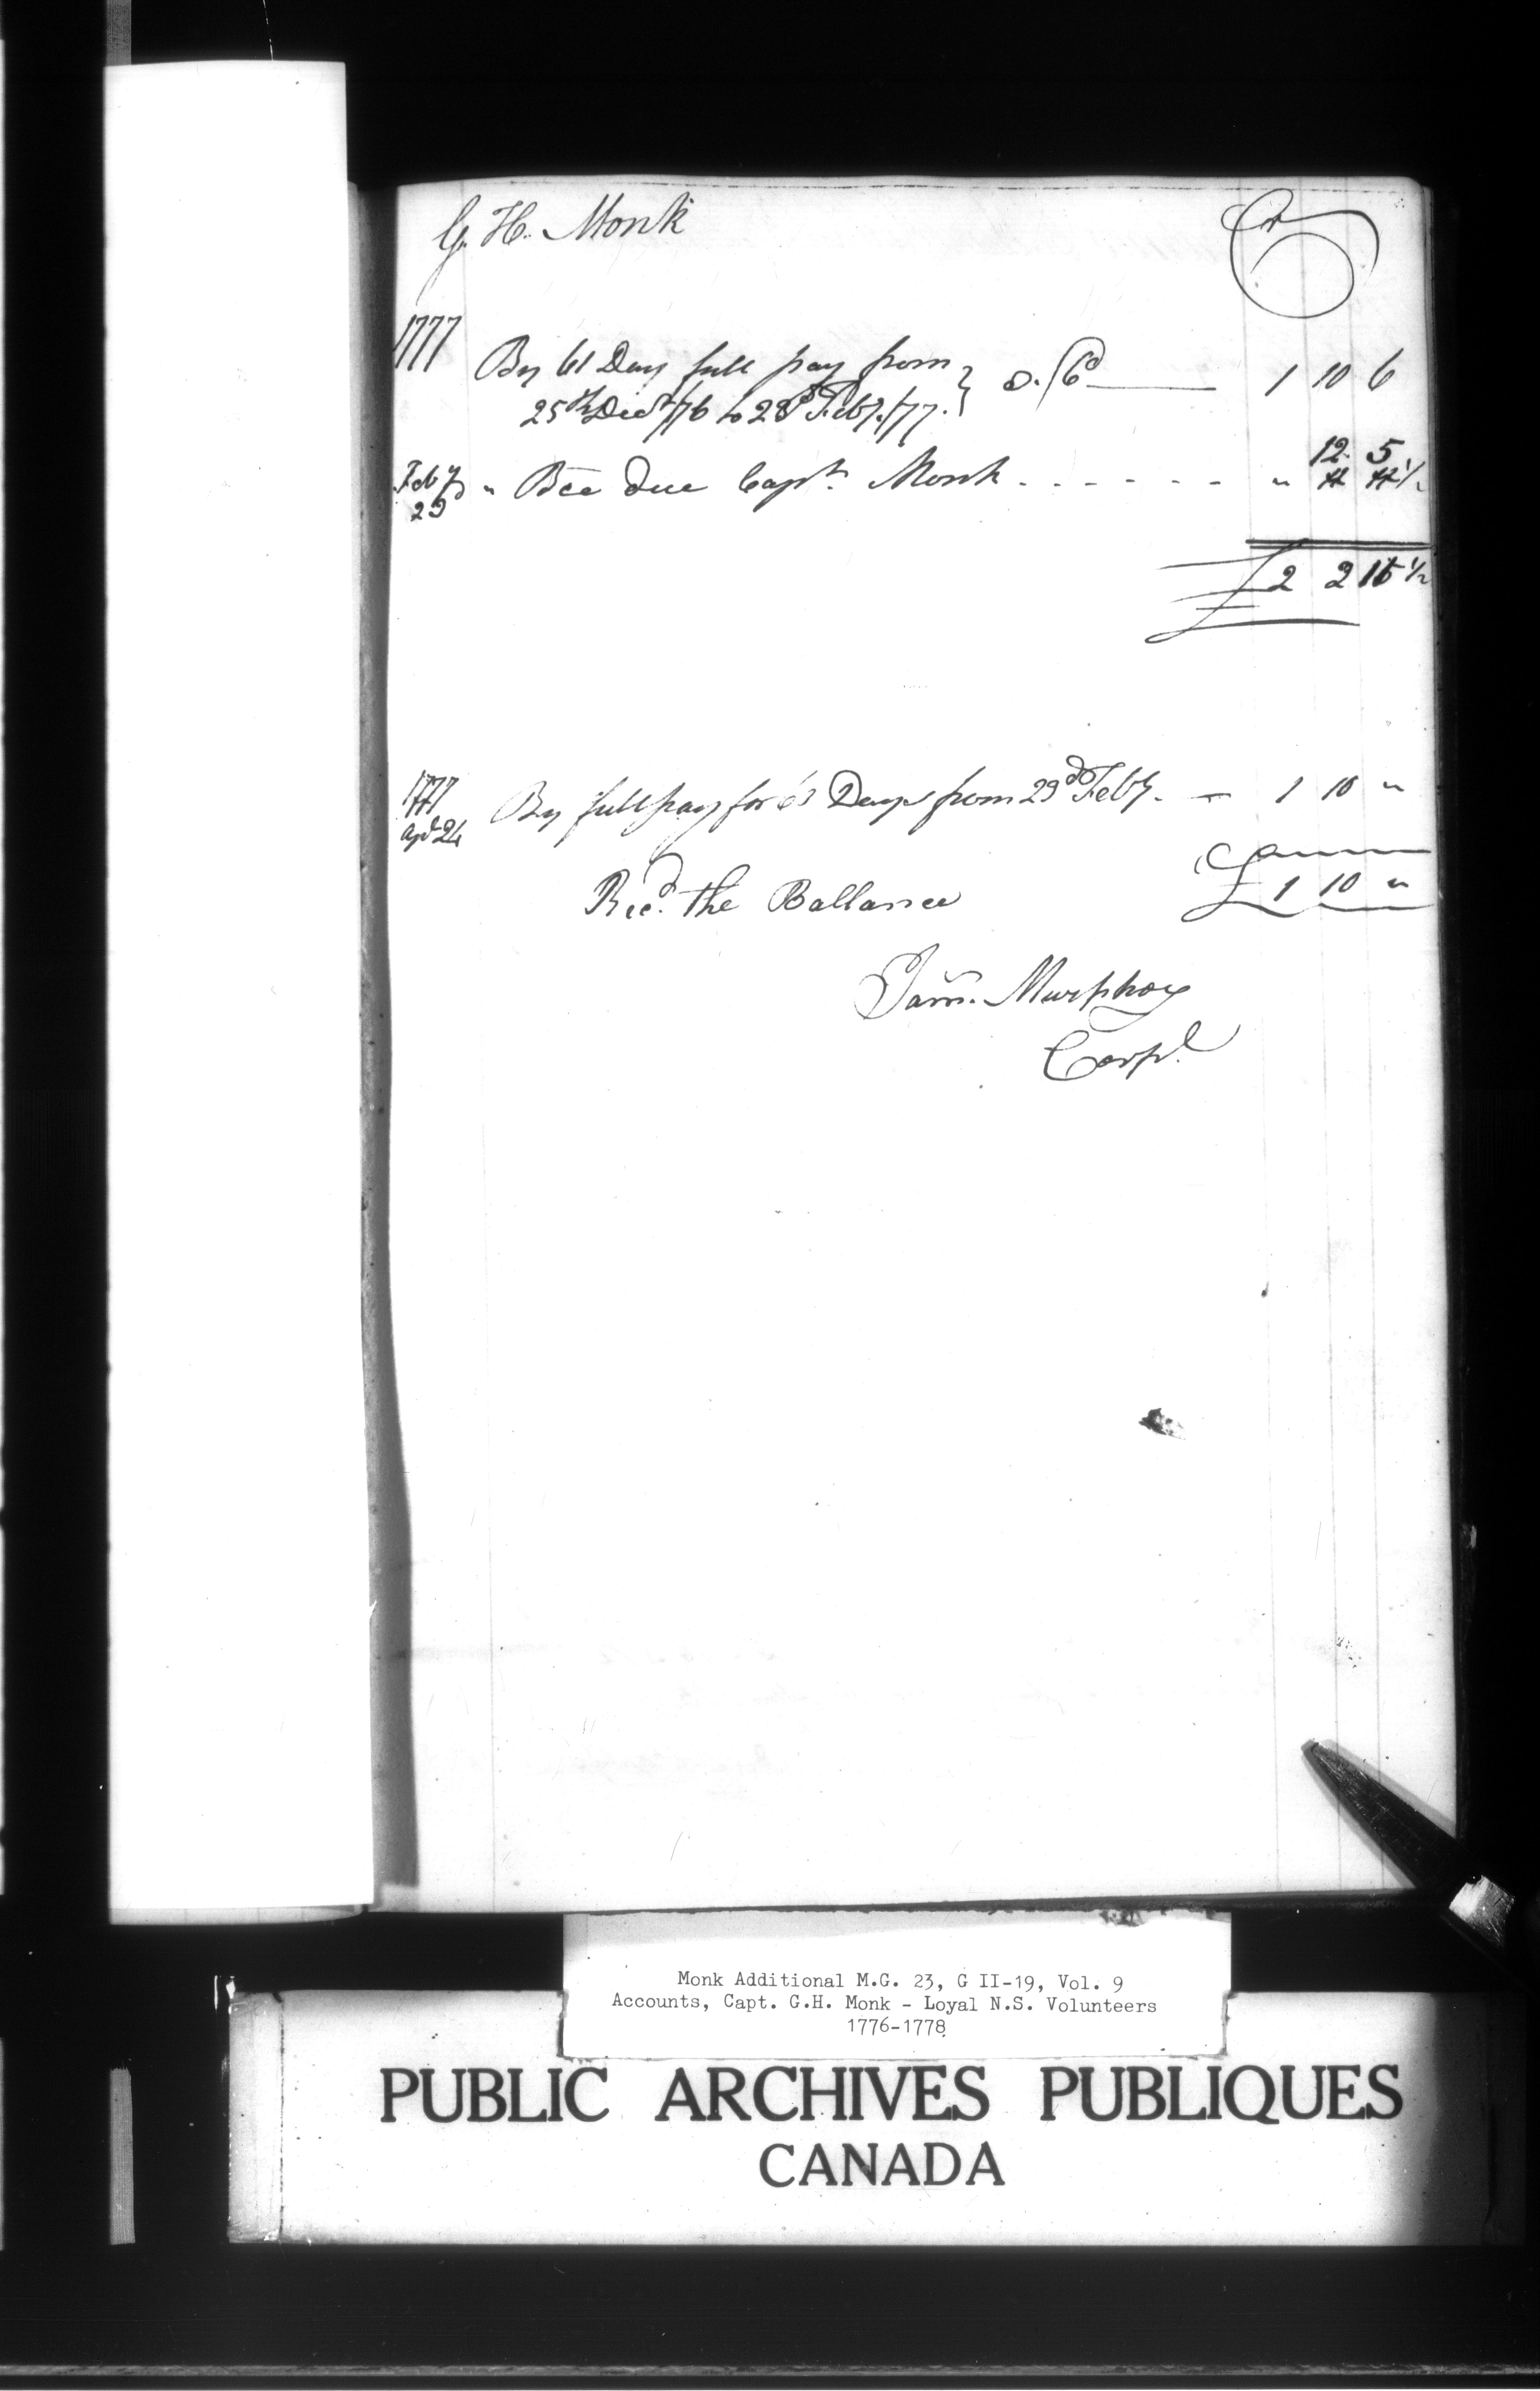 G. H. Monk Cr
1777 By 61 Day full pay from } @ /6d 1 10 6
25th Decr /76 to 23d Feby. /77.
12 5
Feby 23 " Bce due Capt. Monk - - - - - - " ½
£ 2 2 ½
1777
Apl 24 By full pay for Days from 23d Feby. — 1 10 "
Recd. the Ballance £ 1 10 "
Jam. Murphoy
Corpl
Monk Additional M.G. 23, G II-19, Vol. 9
Accounts, Capt. G.H. Monk - Loyal N.S. Volunteers
1776-1778
PUBLIC ARCHIVES PUBLIQUES
CANADA